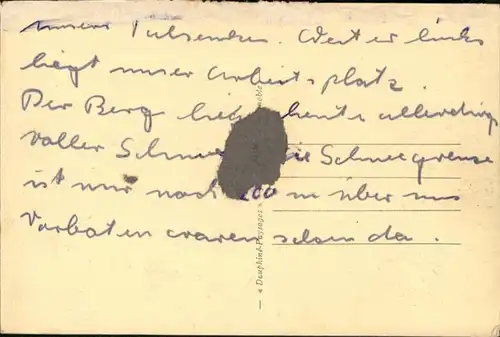 unsere Tulsenden. Weiter links
liegt unser Arbeitsplatz.
Der Berg liegt heute allerdings
voller Schnee. Die Schneegrenze
ist nur noch 200 m über uns
Vorboten waren schon da.
« Dauphiné-Paysages